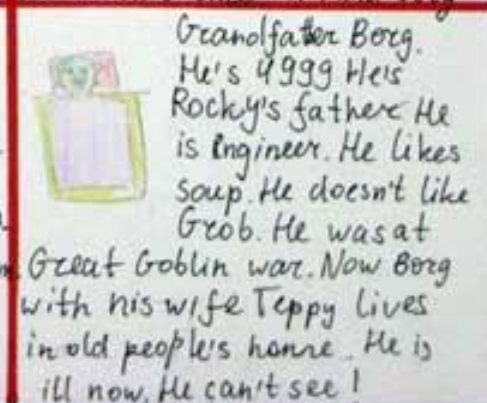 Grandfather Borg.
He's 4999 He's
Rocky's father He
is Engineer. He likes
soup. He doesn't like
Grob. He was at
Great Goblin war. Now Borg
with his wife Teppy lives
in old people's home. He is
ill now. He can't see!